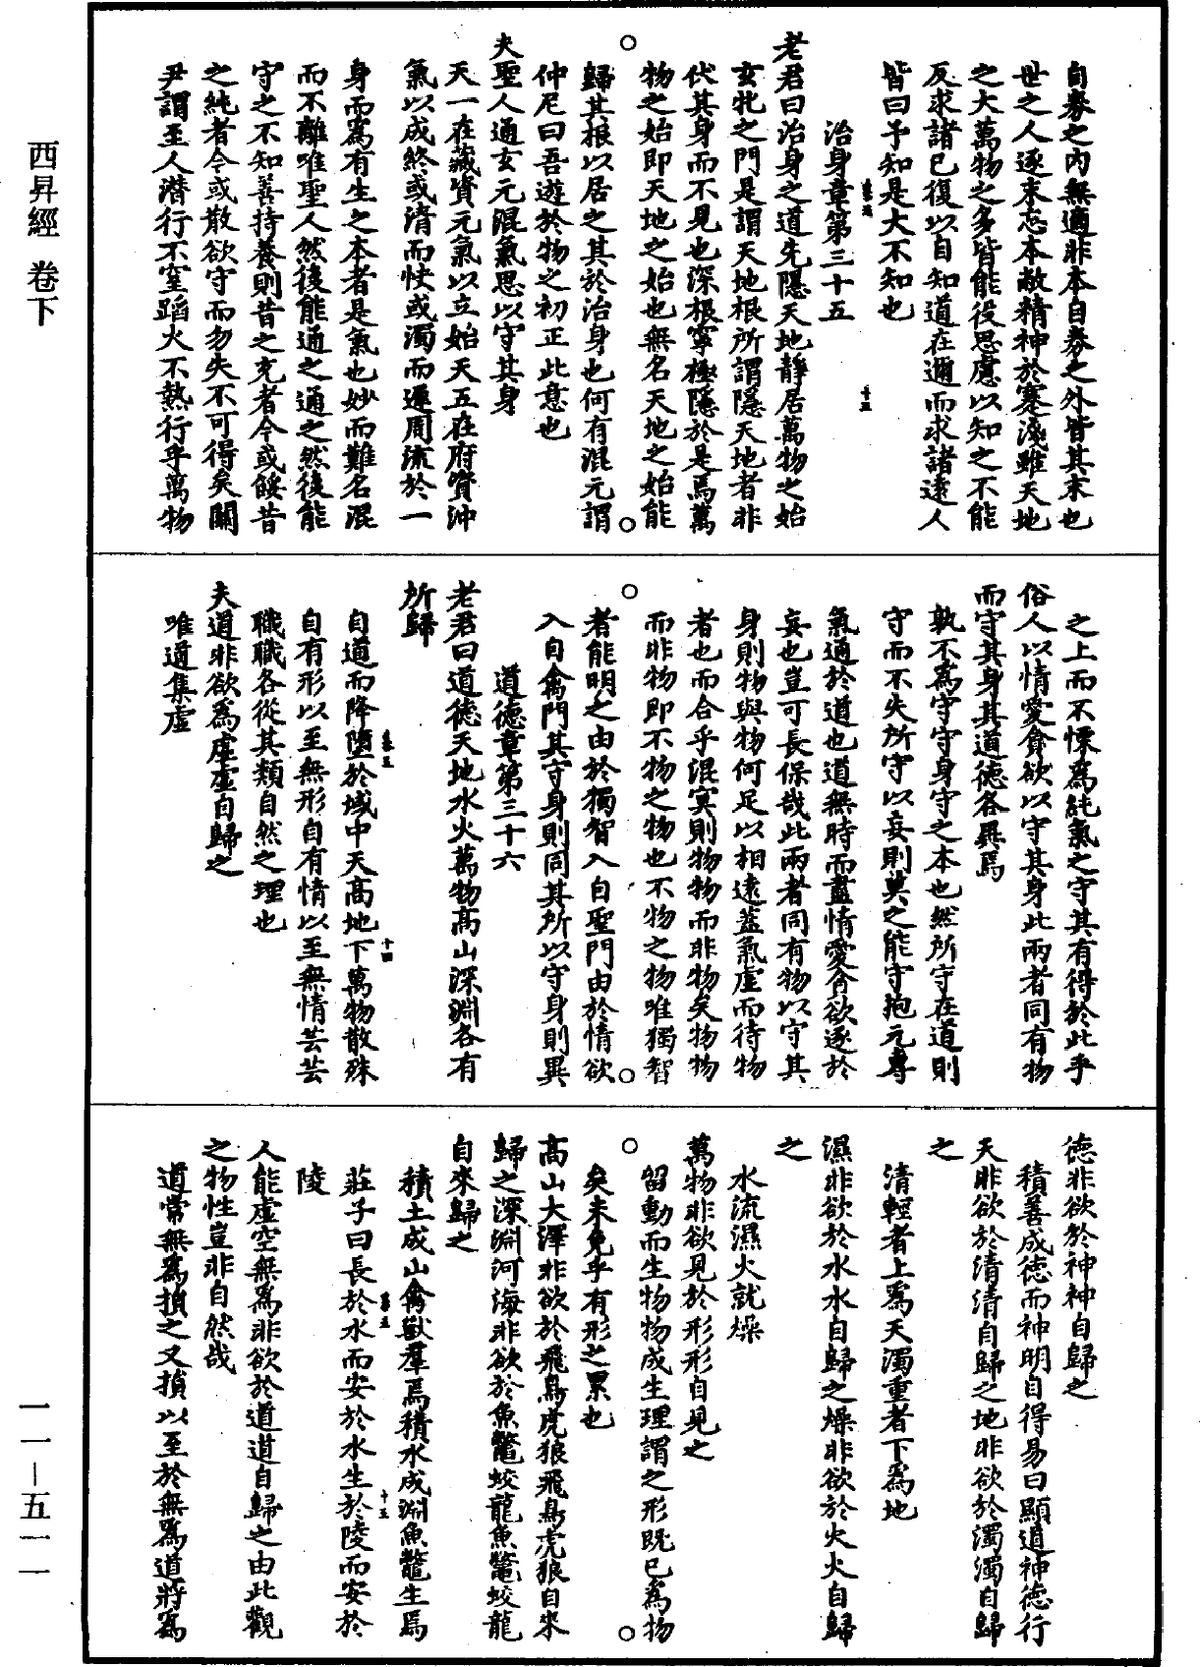 自券之內無適非本自券之外皆其末也
世之人逐末忘本敝精神於蹇淺雖天地
之大萬物之多皆能役思慮以知之不能
反求諸己復以自知道在邇而求諸遠人
皆曰予知是大不知也
治身章第三十五
老君曰治身之道先隱天地靜居萬物之始
玄牝之門是謂天地根所謂隱天地者非
伏其身而不見也深根寧極隱於是焉萬
物之始即天地之始也無名天地之始能
歸其根以居之其於治身也何有混元謂
仲尼曰吾遊於物之初正此意也
夫聖人通玄元混氣思以守其身
天一在藏資元氣以立始天五在府資沖
氣以成終或清而快或濁而遲周流於一
身而為有生之本者是氣也妙而難名混
而不離唯聖人然後能通之通之然後能
守之不知善持養則昔之充者今或餒昔
之純者今或散欲守而勿失不可得矣關
尹謂至人潛行不窒蹈火不熱行乎萬物
之上而不慄為純氣之守其有得於此乎
俗人以情愛貪欲以守其身此兩者同有物
而守其身其道德各異焉
孰不為守守身守之本也然所守在道則
守而不失所守以妄則莫之能守抱元專
氣通於道也道無時而盡情愛貪欲逐於
妄也豈可長保哉此兩者同有物以守其
身則物與物何足以相遠蓋氣虛而待物
者也而合乎混冥則物物而非物矣物物
而非物即不物之物也不物之物唯獨智
者能明之由於獨智入自聖門由於情欲
入自禽門其守身則同其所以守身則異
道德章第三十六
老君曰道德天地水火萬物高山深淵各有
所歸
自道而降墮於域中天高地下萬物散殊
自有形以至無形自有情以至無情芸芸
職職各從其類自然之理也
夫道非欲為虛虛自歸之
唯道集虛
德非欲於神神自歸之
積善成德而神明自得易曰顯道神德行
天非欲於清清自歸之地非欲於濁濁自歸
之
清輕者上為天濁重者下為地
濕非欲於水水自歸之燥非欲於火火自歸
之
水流濕火就燥
萬物非欲見於形形自見之
留動而生物物成生理謂之形既已為物
矣未免乎有形之累也
高山大澤非欲於飛鳥虎狼飛鳥虎狼自來
歸之深淵河海非欲於魚鱉蛟龍魚鱉蛟龍
自來歸之
積土成山禽獸羣焉積水成淵魚鱉生焉
莊子曰長於水而安於水生於陵而安於
陵
人能虛空無為非欲於道道自歸之由此觀
之物性豈非自然哉
道常無為損之又損以至於無為道將為
西昇經 卷下
一一－五一一